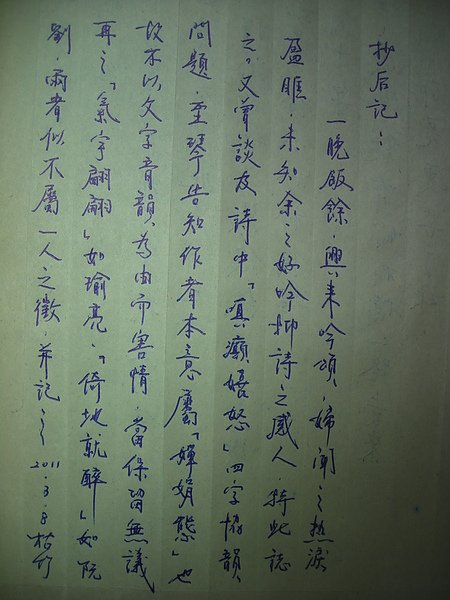 抄后記：
一晚飯餘，興來吟頌，婦聞之熱淚
盈眶，未知余之好吟抑詩之感人，特此誌
之。又曾談友詩中「嗔癲嬉怒」四字協韻
問題，重琴告知作者本意屬「嬋娟態」也
故不以文字音韻為由而害情，當保留無議
再之「氣宇翩翩」如瑜亮，「倚地就醉」如阮
劉，兩者似不屬一人之徵，并記之 2011.3.8